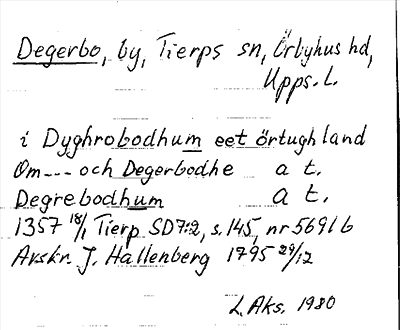 Degerbo, by, Tierps sn, Örbyhus hd,
Upps. L.
i Dyghrobodhum eet örtughland
Om--- och Degerbodhe a t.
Degrebodhum a t.
1357 18/1 Tierp SD7:2, s. 145, nr 5691 b
Avskr. J. Hallenberg 1795 29/12
L Aks. 1980